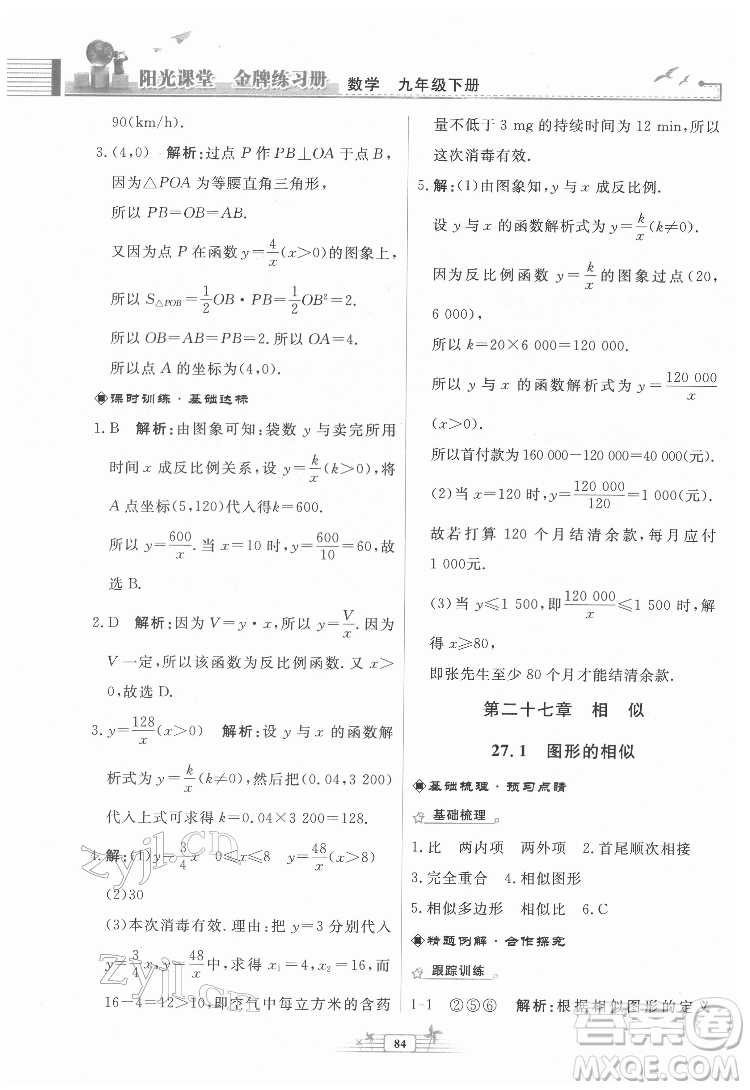 阳光课堂 金牌练习册 数学 九年级下册
90(km/h).
3.(4,0) 解析:过点 P 作 PB⊥OA 于点 B,
因为△POA 为等腰直角三角形,
所以 PB=OB=AB.
又因为点 P 在函数 y=4/x(x>0)的图象上,
所以 S△POB=1/2OB·PB=1/2OB²=2.
所以 OB=AB=PB=2.所以 OA=4.
所以点 A 的坐标为(4,0).
课时训练·基础达标
1.B 解析:由图象可知:袋数 y 与卖完所用
时间 x 成反比例关系,设 y=k/x(k≠0),将
A 点坐标(5,120)代入得 k=600.
所以 y=600/x.当 x=10 时,y=600/10=60,故
选 B.
2.D 解析:因为 V=y·x,所以 y=V/x.因为
V 一定,所以该函数为反比例函数.
故选 D.
3.y=128/x(x>0) 解析:设 y 与 x 的函数解
析式为 y=k/x(k≠0),然后把(0.04,3 200)
代入上式可求得 k=0.04×3 200=128.
4.解:(1)y=3/4x 0≤x≤8 y=48/x(x>8)
(2)30
(3)本次消毒有效.理由:把 y=3 分别代入
y=3/4x,y=48/x,求得 x₁=4,x₂=16,
16-4=12>10,即空气中每立方米的含药
量不低于 3 mg 的持续时间为 12 min,所以
这次消毒有效.
5.解:(1)由图象知,y 与 x 成反比例.
设 y 与 x 的函数解析式为 y=k/x(k≠0),
因为反比例函数 y=k/x的图象过点(20,
6 000),
所以 k=20×6 000=120 000.
所以 y 与 x 的函数解析式为 y=120 000/x
(x>0).
所以首付款为 160 000-120 000=40 000(元).
(2)当 x=120 时,y=120 000/120=1 000(元),
故若打算 120 个月结清余款,每月应付
1 000元.
(3)当 y≤1 500,即120 000/x≤1 500 时,解
得 x≥80,
即张先生至少 80 个月才能结清余款.
第二十七章 相 似
27.1 图形的相似
基础梳理·预习点睛
基础梳理
1.比 两内项 两外项 2.首尾顺次相接
3.完全重合 4.相似图形
5.相似多边形 相似比 6.C
精题例解·合作探究
跟踪训练
1-1 ②⑤⑥ 解析:根据相似图形的定义
84
zyjl.cn
zyjl.cn
答案圈
MXQE.COM